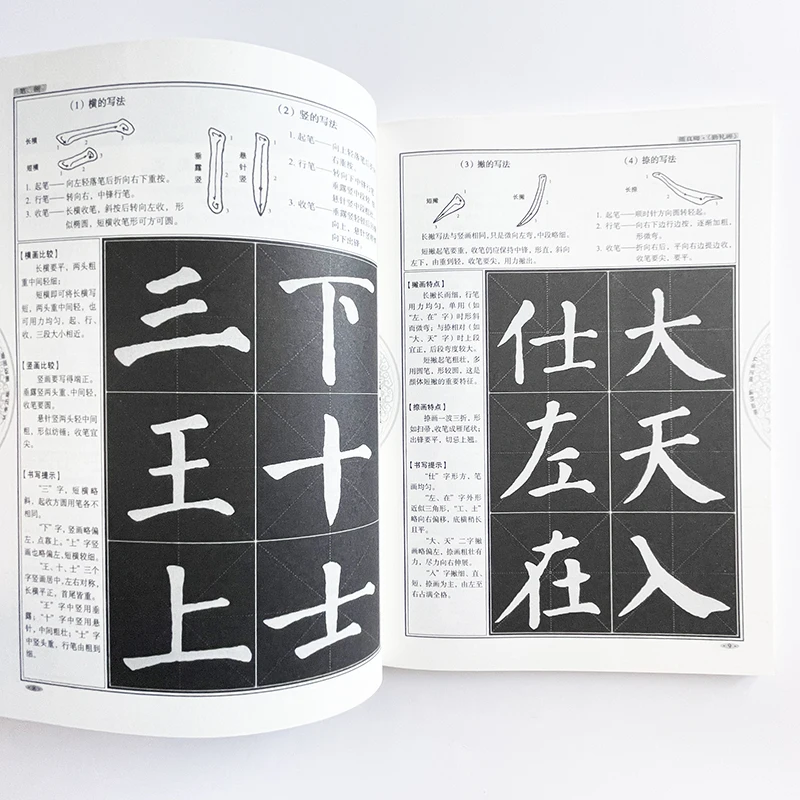 (1) 横的写法
长横
短横
1. 起笔——向左轻落笔后折向右下重按。
2. 行笔——转向右，中锋行笔。
3. 收笔——长横收笔，斜按后转向左收，形
似椭圆，短横收笔形可方可圆。
(2) 竖的写法
垂露竖
悬针竖
1. 起笔——向上轻落笔
右重按。
2. 行笔——转向下
3. 收笔——垂露竖
【横画比较】
长横要平，两头粗
重中间轻细；
短横即可将长横写
短，两头重中间轻。也
可用力均匀，起、行、
收，三段大小相近。
【竖画比较】
竖画要写得端正。
垂露竖两头重、中间轻，
收笔要圆。
悬针竖两头轻中间
粗，形似纺锤；收笔宜
尖。
【书写提示】
“三”字，短横略
斜，起收方圆用笔各不
相同。
“下”字，竖画略偏
左，点靠上。“上”字竖
画也略偏左，短横较细。
“王、十、士”三个
字竖画居中，左右对称，
长横平正，首尾皆重。
“王”字中竖用垂
露；“十”字中竖用悬
针，中间粗壮；“士”字
中竖头重，行笔由粗到
细。
三 下
王 十
上 士
(3) 撇的写法
短撇
长撇
长撇写法与竖画相同，只是微向左弯，中段略细。
短撇起笔要重，收笔仍应保持中锋，形直，斜向
左下，由重到轻，收笔要尖，用力撇出。
(4) 捺的写法
长捺
1. 起笔——顺时针方向圆转轻起。
2. 行笔——向右下行边按，逐渐加粗，
形微弯。
3. 收笔——折向右后，平向右边提边收，
收笔要尖，要平。
【撇画特点】
长撇长而细，行笔
用力均匀，单用（如
“左、在”字）时形斜
而微弯；与捺相对（如
“大、天”字）时上段
宜正，后段弯度较大。
短撇起笔粗壮，多
用圆笔，形较圆，这是
颜体短撇的重要特征。
【捺画特点】
捺画一波三折，形
如扫帚，收笔成雁尾状；
出锋要平，切忌上翘。
【书写提示】
“仕”字形方，笔
画均匀。
“左、在”字外形
近似三角形，“工、土”
略向右偏移，底横稍长
且平。
“大、天”二字撇
画略偏左，捺画粗壮有
力，尽力向右伸展。
“人”字撇细、直、
短，捺画为主，由左至
右占满全格。
仕 大
左 天
在 入